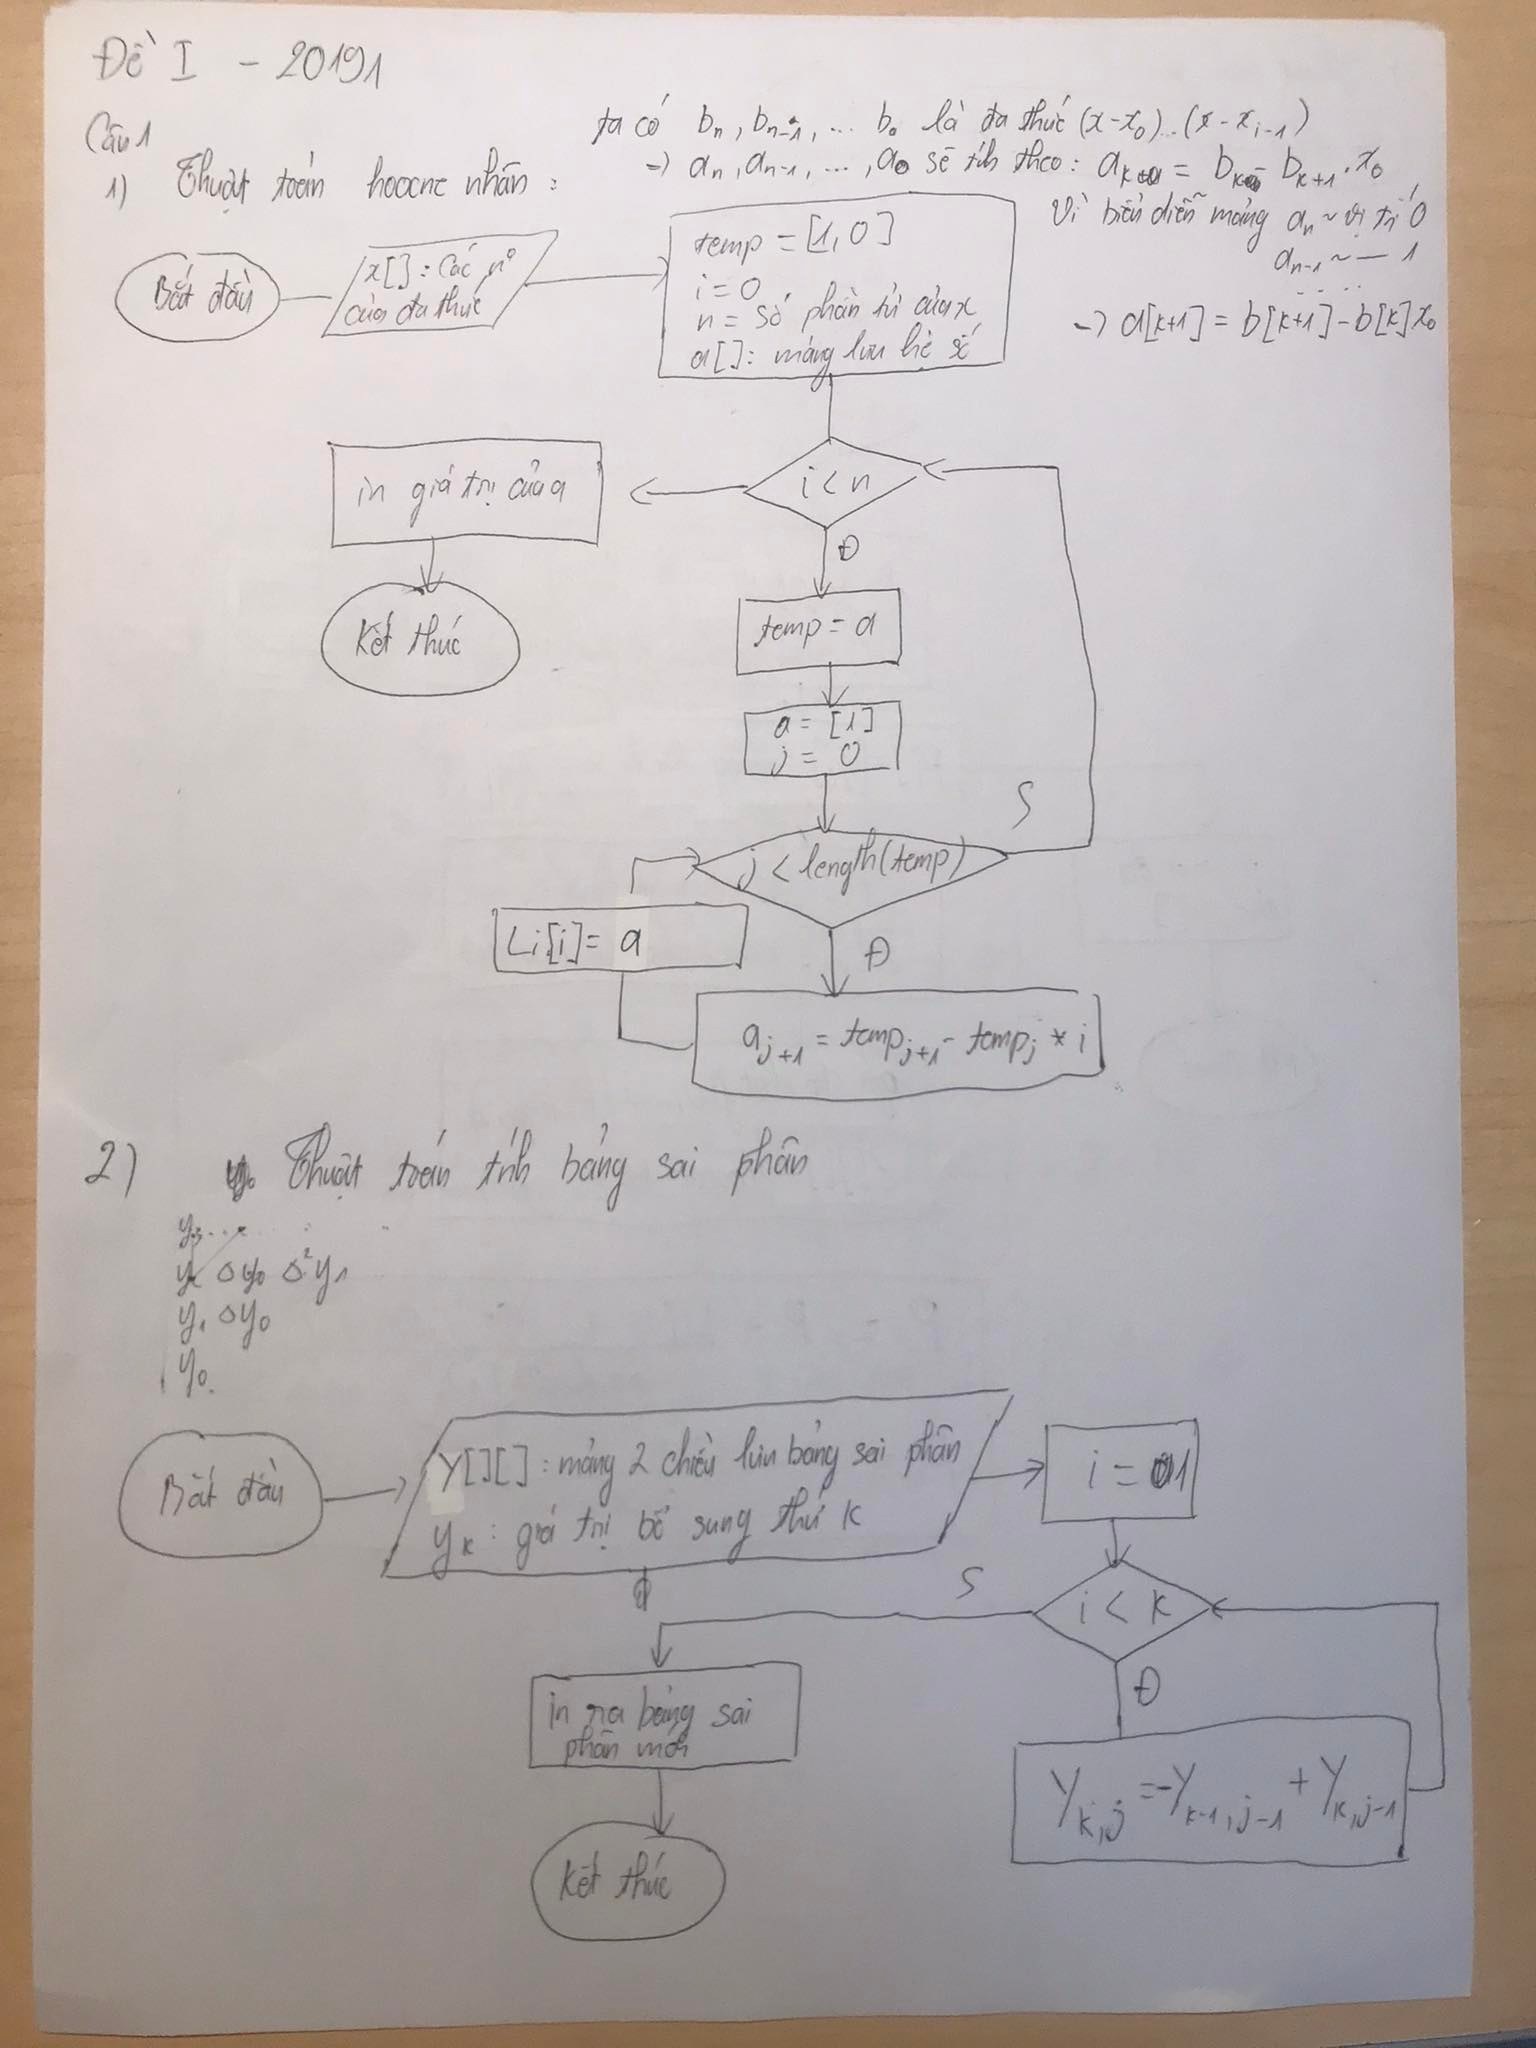 Đề I - 20191
Câu 1
1) Thuật toán hoocne nhân:
ta có bn, bn-1, ... b0 là đa thức (x-x0)...(x-xi-1)
→ an, an-1, ..., a0 sẽ tính theo: ak = bk - bk+1.x0
Vì biểu diễn mảng an ~ vị trí 0
an-1 ~ — 1
.....
→ a[k+1] = b[k+1] - b[k]x0
Bắt đầu
x[]: Các no
của đa thức
temp = [1, 0]
i = 0
n = số phần tử của x
a[]: mảng lưu hệ số
i < n
in giá trị của a
Đ
Kết thúc
temp = a
a = [1]
j = 0
S
j < length(temp)
Li[i] = a
Đ
aj+1 = tempj+1 - tempj * i
2) Thuật toán tính bảng sai phân
y3 ...
y2 Δy0 Δ²y1
y1 Δy0
y0
Bắt đầu
Y[][]: mảng 2 chiều lưu bảng sai phân
yk: giá trị bổ sung thứ k
i = 1
S
i < k
Đ
in ra bảng sai
phân mới
Yk,j = -Yk-1,j-1 + Yk,j-1
Kết thúc